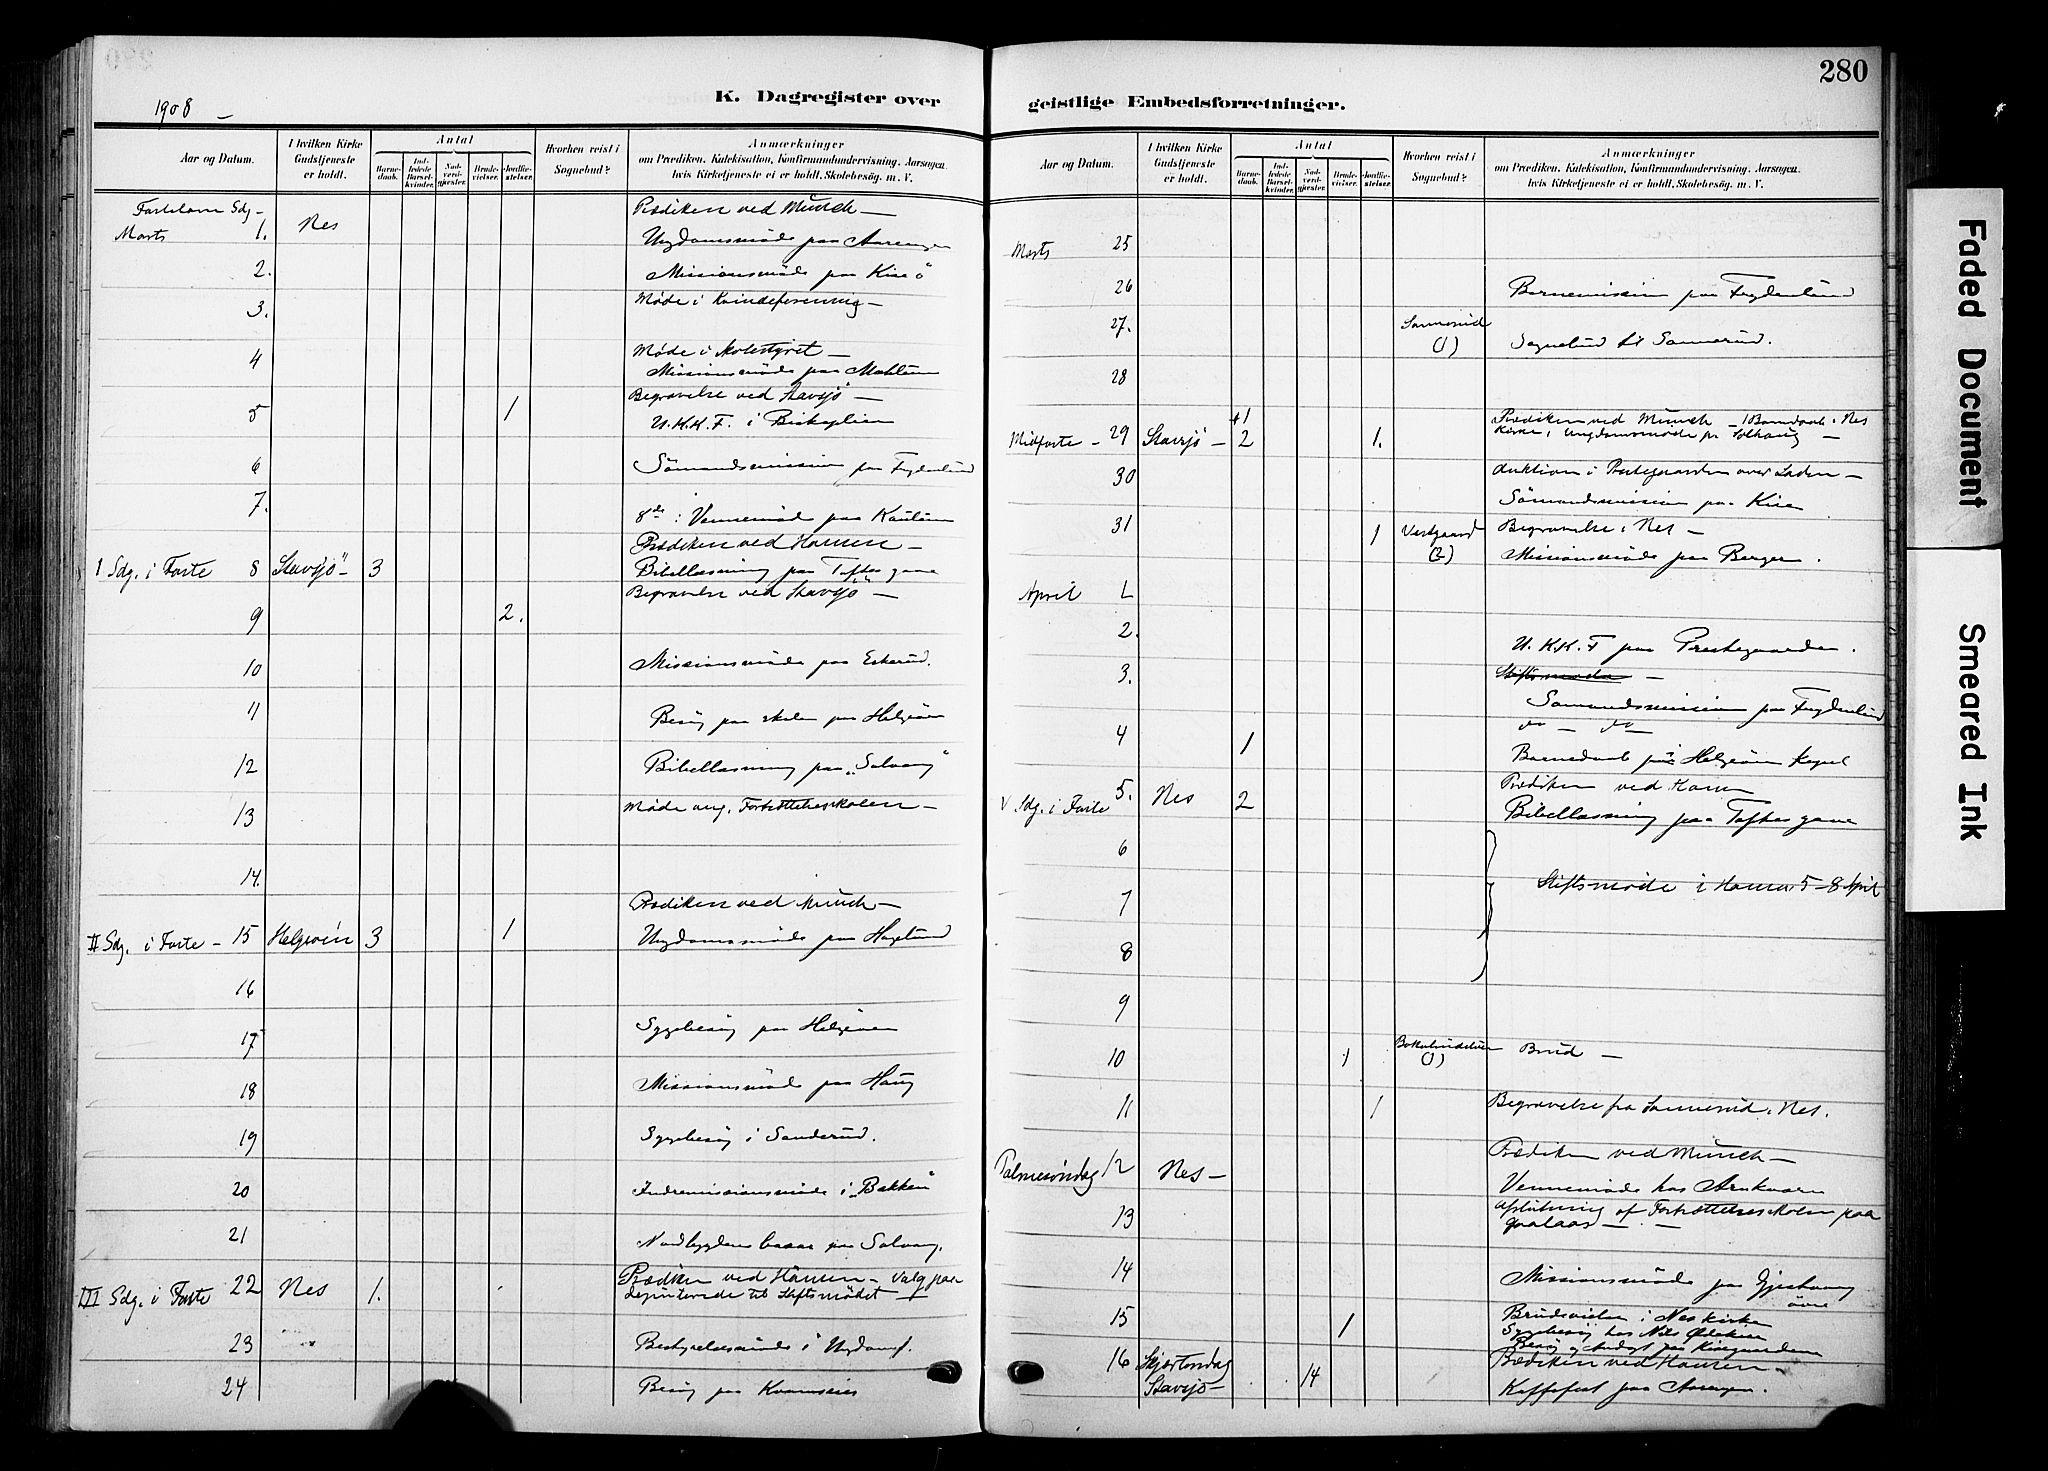 280
1908 –
K. Dagregister over geistlige Embedsforretninger.
Aar og Datum.
I hvilken Kirke Gudstjeneste er holdt.
Antal
Barnedaab.
Indledede Barselkvinder.
Nadverdgjester.
Brudevielser.
Jordfæstelser.
Hvorhen reist i Sognebud?
Anmærkninger
om Prædiken, Katekisation, Konfirmandundervisning, Aarsagen,
hvis Kirketjeneste ei er holdt, Skolebesøg. m. V.
Fastelavn Sdg –
Marts 1. Nes Prædiken ved Munch –
Ungdomsmøde paa Aarengen
2. Missionsmøde paa Kise
3. Møde i Kvindeforening –
4 Møde i Skolestyret –
Missionsmøde paa
5 1 Begravelse ved Stavsjö –
U.K.K.F. i
6 Sömandsmission paa Frydenlund
7. 8de: Vennemøde paa
Prædiken ved Hansen –
I Sdg. i Faste 8 Stavsjö – 3 Bibellæsning paa Toftes gave
9 2. Begravelse ved Stavsjö –
10 Missionsmøde paa Eskerud.
11 Besøg paa skolen paa Helgøen
12 Bibellæsning paa „Solvang"
13 Møde ang. Fortsættelsesskolen –
14.
Prædiken ved Munch –
II Sdg. i Faste – 15 Helgøen 3 1 Ungdomsmøde paa Hagelund
16
17 Sygebesøg paa Helgøen
18 Missionsmøde paa Haug
19 Sygebesøg i Sanderud.
20 Indremissionsmøde i „Bakken"
21 Nordbygdens basar paa Solvang.
III Sdg. i Faste 22 Nes 1. Prædiken ved Hansen – Valg paa
deputerede til Stiftsmødet –
23 Bestyrelsesmøde i Ungdomsf.
24 Besøg paa
Aar og Datum.
I hvilken Kirke Gudstjeneste er holdt.
Antal
Barnedaab.
Indledede Barselkvinder.
Nadverdgjester.
Brudevielser.
Jordfæstelser.
Hvorhen reist i Sognebud?
Anmærkninger
om Prædiken, Katekisation, Konfirmandundervisning, Aarsagen,
hvis Kirketjeneste ei er holdt. Skolebesøg. m. V.
Marts 25
26 Barnemission paa Frydenlund
27. Sannerud (1) Sognebud til Sannerud.
28
Midfaste – 29 Stavsjö – +1 2 1. Prædiken ved Munch – 1 Barnedaab i Nes
Kirke, Ungdomsmøde pr Solhaug –
30 Auktion i Prestegaarden over Laden –
Sömandsmission paa Kise
31 1 Vestgaard (2) Begravelse i Nes –
Missionsmøde paa Berger.
April 1
2. U.K.K.F paa Prestegaarden.
3. Stiftsmøde –
Sömandsmission paa Frydenlund
4 1 do – do –
Barnedaab paa Helgøen Kapel
V Sdg. i Faste 5. Nes 2 Prædiken ved Hansen
Bibellæsning paa Toftes gave
6
7 Stiftsmøde i Hamar 5–8 April
8
9
10 1 (1) Brud –
11 1 Begravelse fra Sannerud i Nes.
Prædiken ved Munch –
Palmesøndag 12 Nes – Vennemøde hos Arnkværn
13 Afslutning af Fortsættelsesskolen paa
Gaalaas –
14 Missionsmøde paa Gjestvang
øvre
15 1 Brudevielse i Nes kirke
Sygebesøg hos Nils
Besøg og Andagt paa
16 Skjærtorsdag Prædiken ved Hansen –
Stavsjö – 14 Kaffefest paa Aarengen.
Faded Document
Smeared Ink